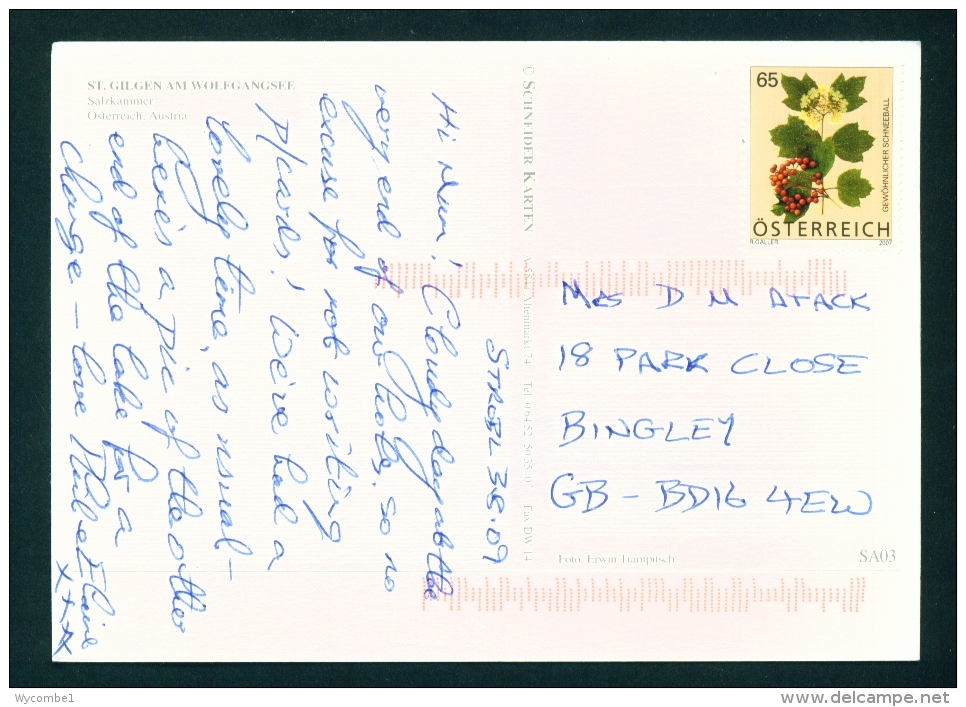 ST. GILGEN AM WOLFGANGSEE
Salzkammer
Österreich, Austria
© SCHNEIDER KARTEN
STROBL 3.8.09
Hi Mum! Cloudy day at the
very end of our hols, so no
excuse for not writing
p/cards! We've had a
lovely time, as usual –
here's a pic of the other
end of the lake for a
change – love
x x x x
65
GEWÖHNLICHER SCHNEEBALL
ÖSTERREICH
R.GALLER 2007
MRS D M ATACK
18 PARK CLOSE
BINGLEY
GB – BD16 4EW
Foto: Erwin Trampitsch
SA03
Wycombe1
www.delcampe.net